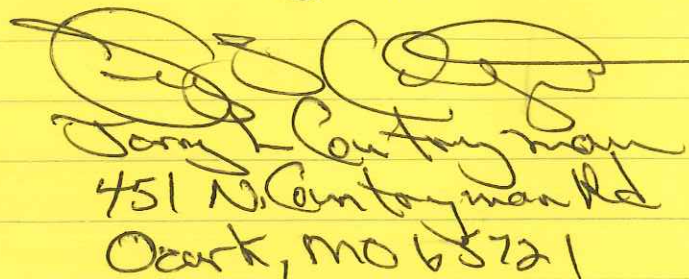 L Countryman
451 N. Countryman Rd
Ozark, MO 65721